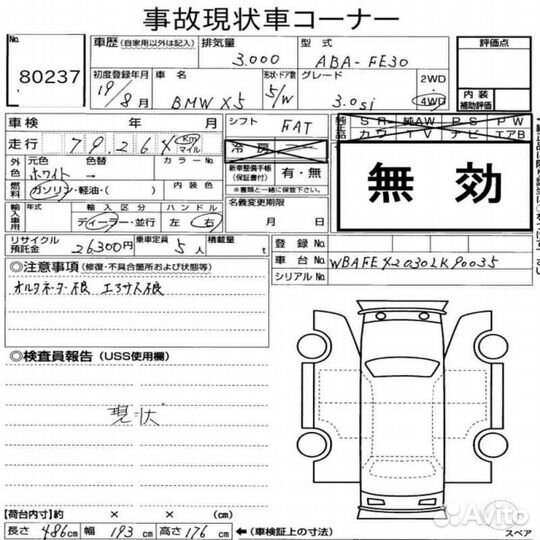 事故現状車コーナー
No.
80237
車歴 (自家用以外は記入)
排気量
3.000
型式
ABA-FE30
評価点
初度登録年月
19/8月
車名
BMW X5
形状・ドア数
5/W
グレード
3.0si
2WD
4WD
内装
補助評価
車検 年 月
走行 79,264 km マイル
シフト
FAT
冷房
純正品 SR 純AW PS PW
カワ TV ナビ エアB
外色
元色
ホワイト
色替
→
カラーNo.
新車整備手帳
(保証書付)
有・無
※書類と一緒に保管下さい。
無効
燃料
ガソリン・軽油・( )
内装色
輸入車用
年式
輸入区分
ディーラー・並行
ハンドル
左 右
名義変更期限
月 日
リサイクル
預託金
26,300円
乗車定員
5人
積載量
t
登録No.
車台No.
WBAFE42030LK90035
シリアルNo.
◎注意事項 (修復・不具合箇所および状態等)
オルタネーター不良 エアサス不良
◎検査員報告 (USS使用欄)
現状
【荷台内寸】約 × × (cm)
長さ 486cm 幅 193cm 高さ 176cm
←(車検証上の寸法)
スペア
Avito